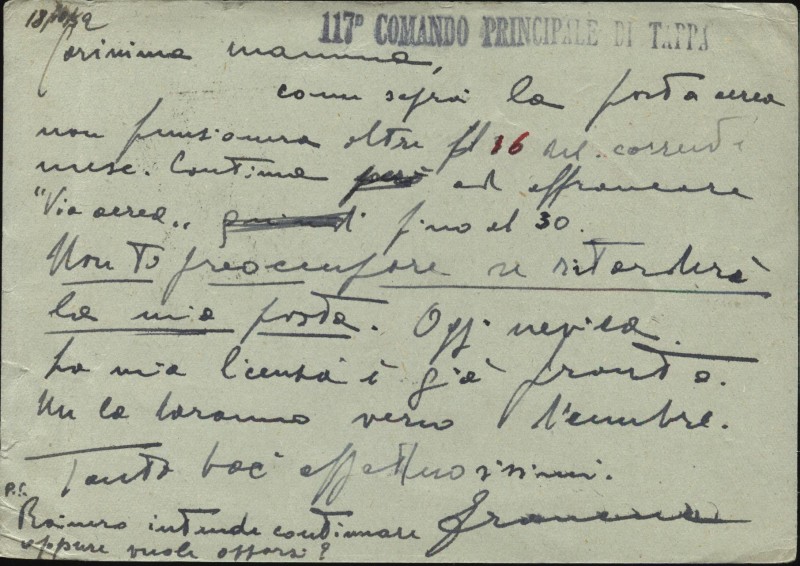 117º COMANDO PRINCIPALE DI TAPPA
Carissima mamma,
come saprai la posta aerea
non funzionerà oltre il 16 del corrente
mese. Continua però ad affrancare
"Via aerea" quindi fino al 30.
Non ti preoccupare se ritarderà
la mia posta. Oggi nevica.
La mia licenza è già pronta.
Me la daranno verso
Tanti baci affettuosissimi.
P.S.
Rainero intende continuare
oppure vuole